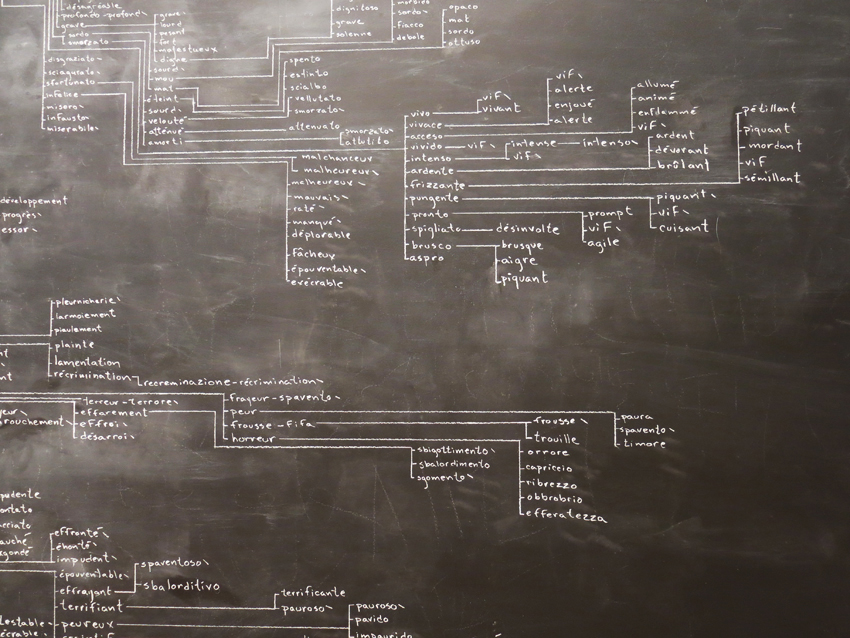 désagréable
profondo-profond\
grave
sordo
smorzato
grave\
lourd
pesant
fort
majestueux
digne
sourd\
mou
mat
éteint
sourd\
velouté
atténué
amorti
dignitoso
grave
solenne
morbido
sordo\
fiacco
debole
opaco
mat
sordo
ottuso
disgraziato\
sciagurato\
sfortunato
infelice
misero\
infausto
miserabile\
spento
estinto
scialbo
vellutato
smorzato\
attenuato
smorzato\
attutito
malchanceux
malheureux\
malheureux\
mauvais\
raté\
manqué\
déplorable
fâcheux
épouventable\
exécrable
vivo
vivace
acceso
vivido
intenso
ardente
frizzante
pungente
pronto
spigliato
brusco
aspro
vif\
vivant
vif\
alerte
enjoué
alerte
allumé
animé
enflammé
vif\
vif\
intense
vif\
intenso\
ardent
dévorant
brûlant
pétillant
piquant
mordant
vif
sémillant
piquant\
vif\
cuisant
prompt
vif\
agile
désinvolte
brusque
aigre
piquant
développement
progrès\
essor\
pleurnicherie\
larmoiement
piaulement
plainte
lamentation
récrimination
recreminazione-récrimination\
terreur-terrore\
effarement
effroi\
désarroi\
frayeur-spavento\
peur
frousse-fifa
horreur
frousse\
trouille
paura
spavento\
timore
sbigottimento\
sbalordimento
sgomento\
orrore
capriccio
ribrezzo
obbrobrio
efferatezza
effronté\
éhonté\
impudent\
épouventable\
effrayant
terrifiant
peureux
spaventoso\
sbalorditivo
terrificante
pauroso\
pauroso\
pavido
impaurido